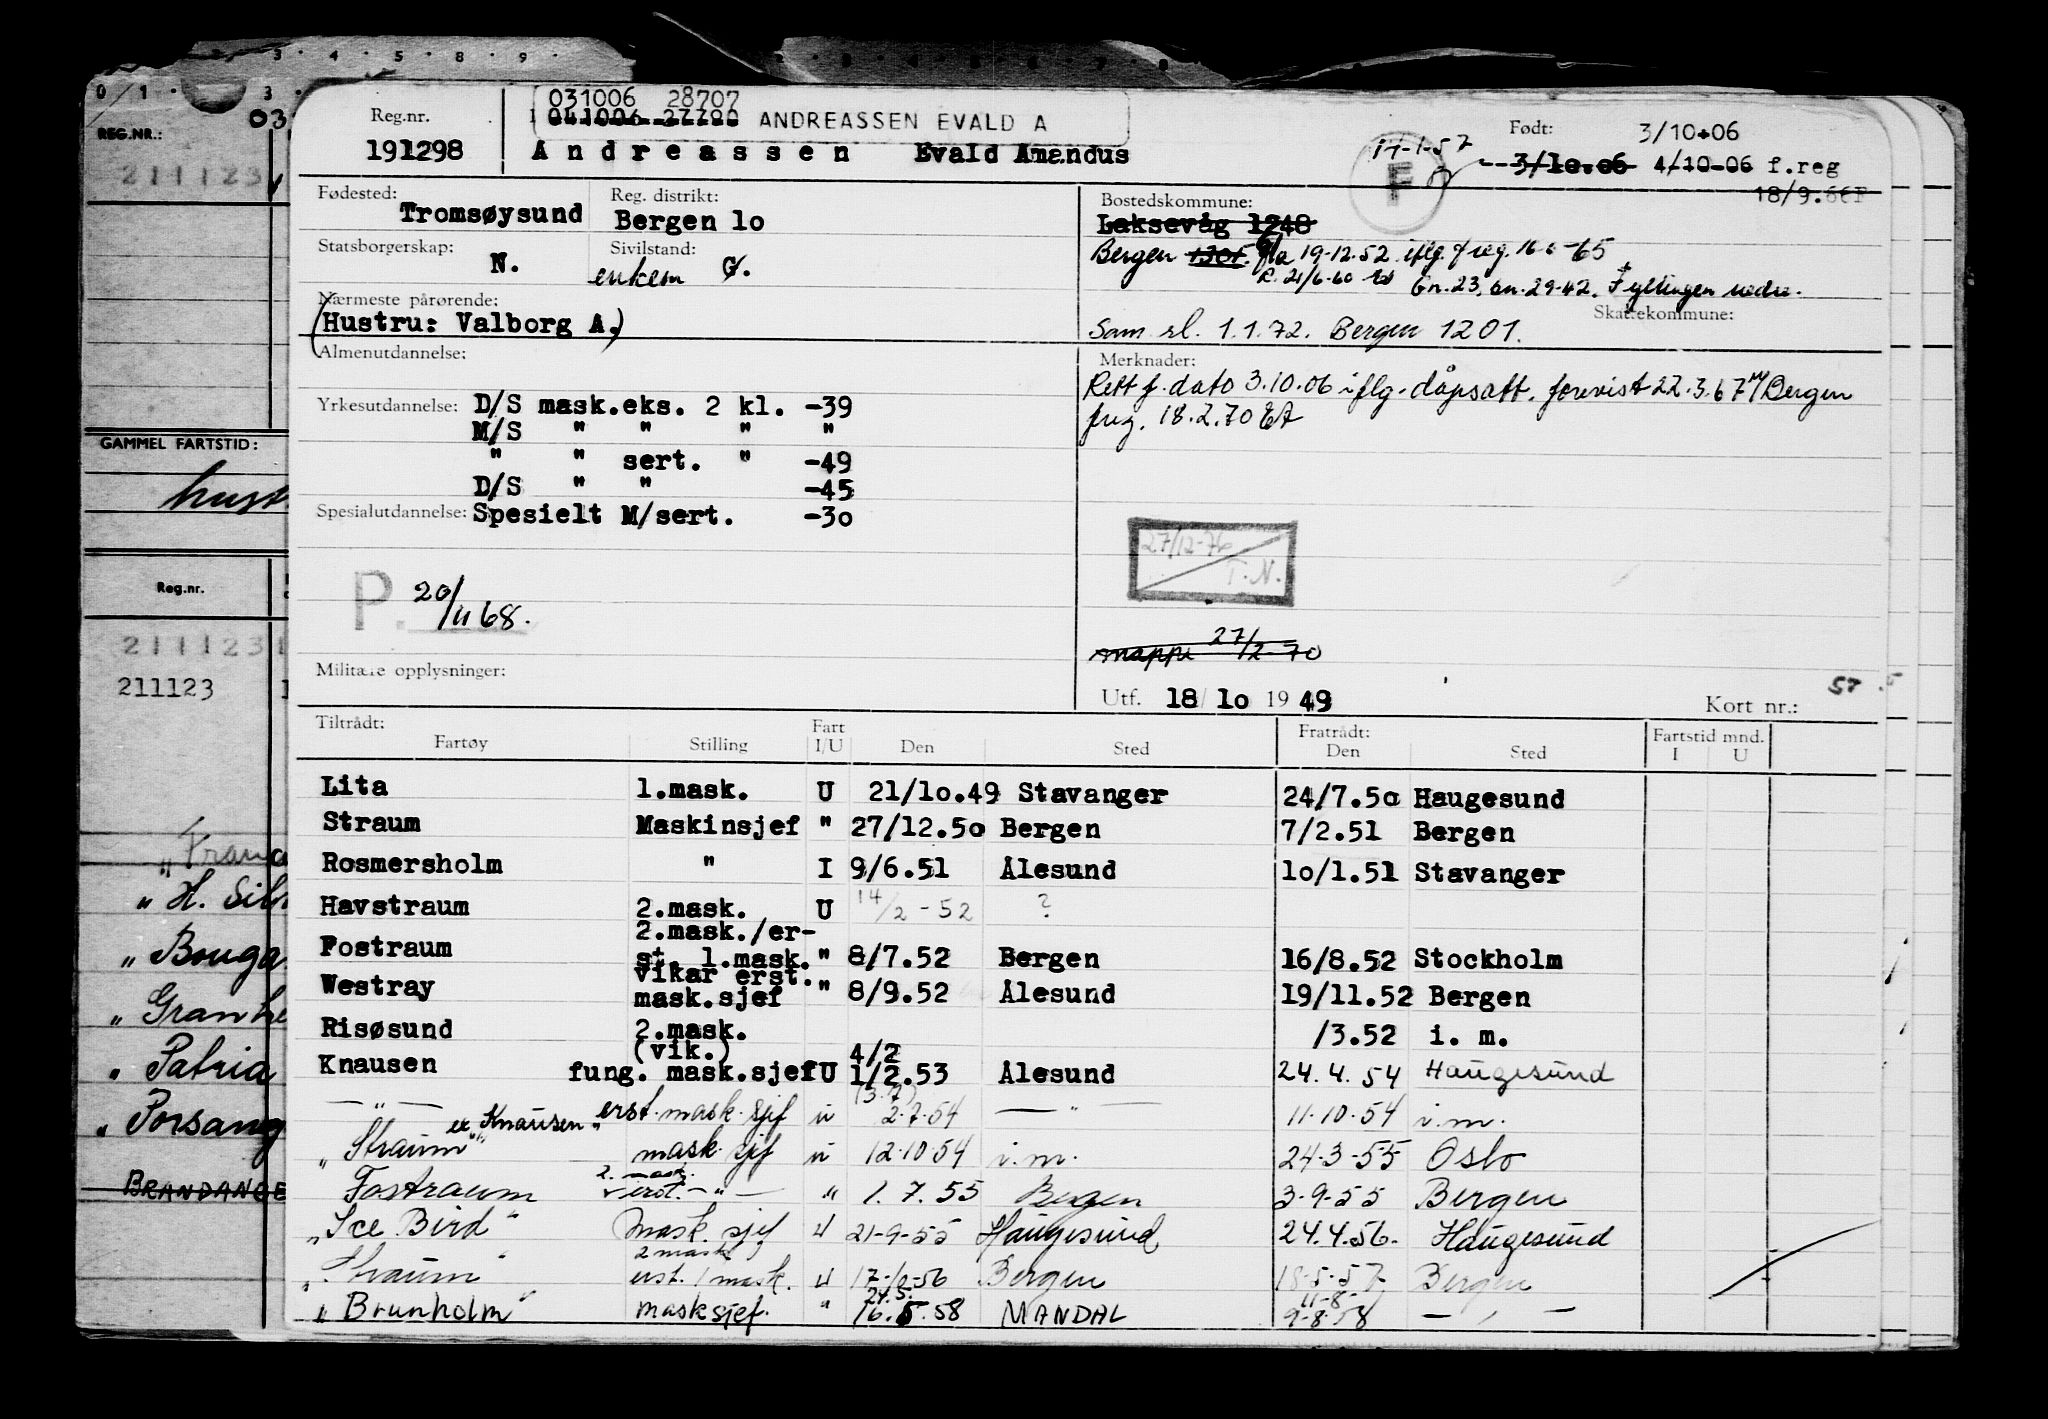 031006 28707
041006 27780 ANDREASSEN EVALD A
Reg.nr.
191298
Andreassen Evald Amandus
17-1-57
F
Født: 3/10-06
3/10.06 4/10-06 f.reg
18/9.66
Fødested: Tromsøysund
Reg. distrikt: Bergen 10
Statsborgerskap: N.
Sivilstand: enkem G.
Nærmeste pårørende:
(Hustru: Valborg A.)
Bostedskommune:
Laksevåg 1248
Bergen 1301. fra 19-12.52 iflg. f reg. 16-65
Gn.23, bn.29-42. Fyllingen nedre.
Skattekommune:
Sam sl. 1.1.72. Bergen 1201.
Almenutdannelse:
Yrkesutdannelse: D/S mask.eks. 2 kl. -39
M/S " " " "
" " sert. " -49
D/S " " -45
Spesialutdannelse: Spesielt M/sert. -30
P. 20/11 68.
Militære opplysninger:
Merknader:
Rett f. dato 3.10.06 iflg. dåpsatt. forevist 22.3.67 Bergen
freg. 18.2.70
27/12-76
T.N.
mappe 27/2-70
Utf. 18/10 1949
57
Kort nr.:
Tiltrådt: Fartøy Stilling Fart I/U Den Sted Fratrådt: Den Sted Fartstid mnd. I U
Lita 1.mask. U 21/10.49 Stavanger 24/7.50 Haugesund
Straum Maskinsjef " 27/12.50 Bergen 7/2.51 Bergen
Rosmersholm " I 9/6.51 Ålesund 10/1.51 Stavanger
Havstraum 2.mask. U 14/2-52 ?
Fostraum 2.mask./erst. 1.mask. " 8/7.52 Bergen 16/8.52 Stockholm
Westray vikar erst. mask.sjef " 8/9.52 Ålesund 19/11.52 Bergen
Risøsund 2.mask. /3.52 i. m.
Knausen (vik.) fung. mask.sjef U 4/2 1/2.53 Ålesund 24.4.54 Haugesund
— " — erst. mask. sjef u (3.7) 2.7.54 — " — 11-10-54 i.m.
"Straum" ex "Knausen" mask sjef u 12-10-54 i.m. 24-3-55 Oslo
Fostraum 2. mask. erst. — " — " 1.7.55 Bergen 3-9-55 Bergen
"Ice Bird" Mask. sjef u 21-9-55 Haugesund 24.4.56. Haugesund
"Straum" 2 mask erst. 1 mask. u 17-10-56 Bergen 18-5-57 Bergen
"Brunholm" masksjef. " 24.5. 16.5.58 MANDAL 11-8- 9-8-58 — " —
0 1 3
03
REG.NR.:
211123
GAMMEL FARTSTID:
Reg.nr.
211123
211123
"Patria
"Porsang
BRANDANGE